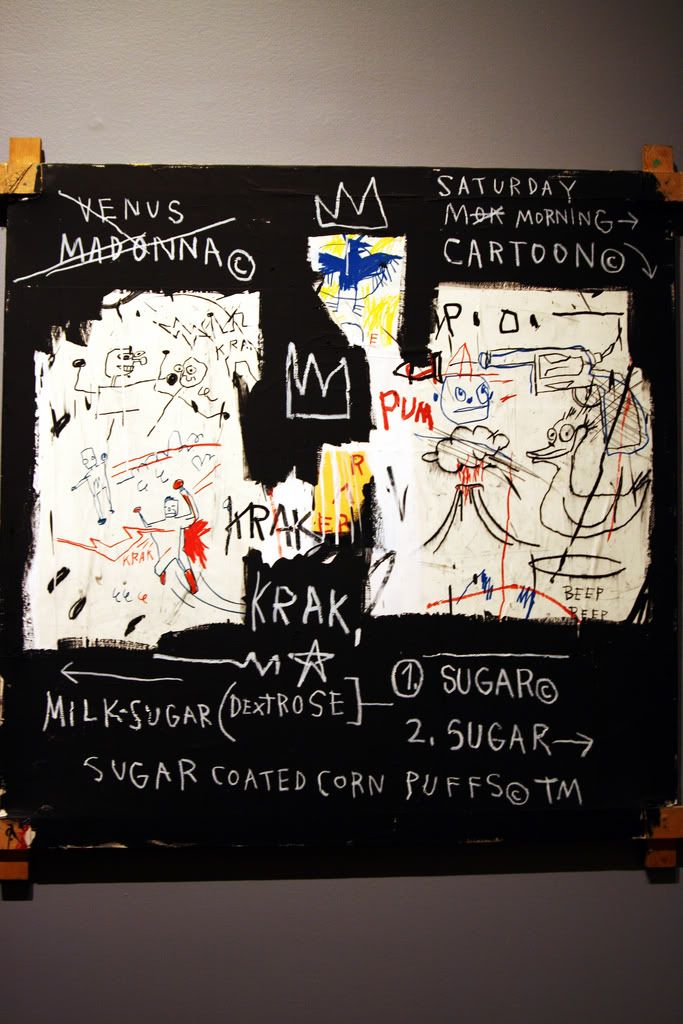 VENUS
MADONNA©
SATURDAY
MOK MORNING →
CARTOON©
KRAK
P.O.
E
PUM
R
KRAK
ER
KRAK
BEEP
BEEP
KRAK,
MILK-SUGAR (DEXTROSE]
1. SUGAR©
2. SUGAR →
SUGAR COATED CORN PUFFS© TM